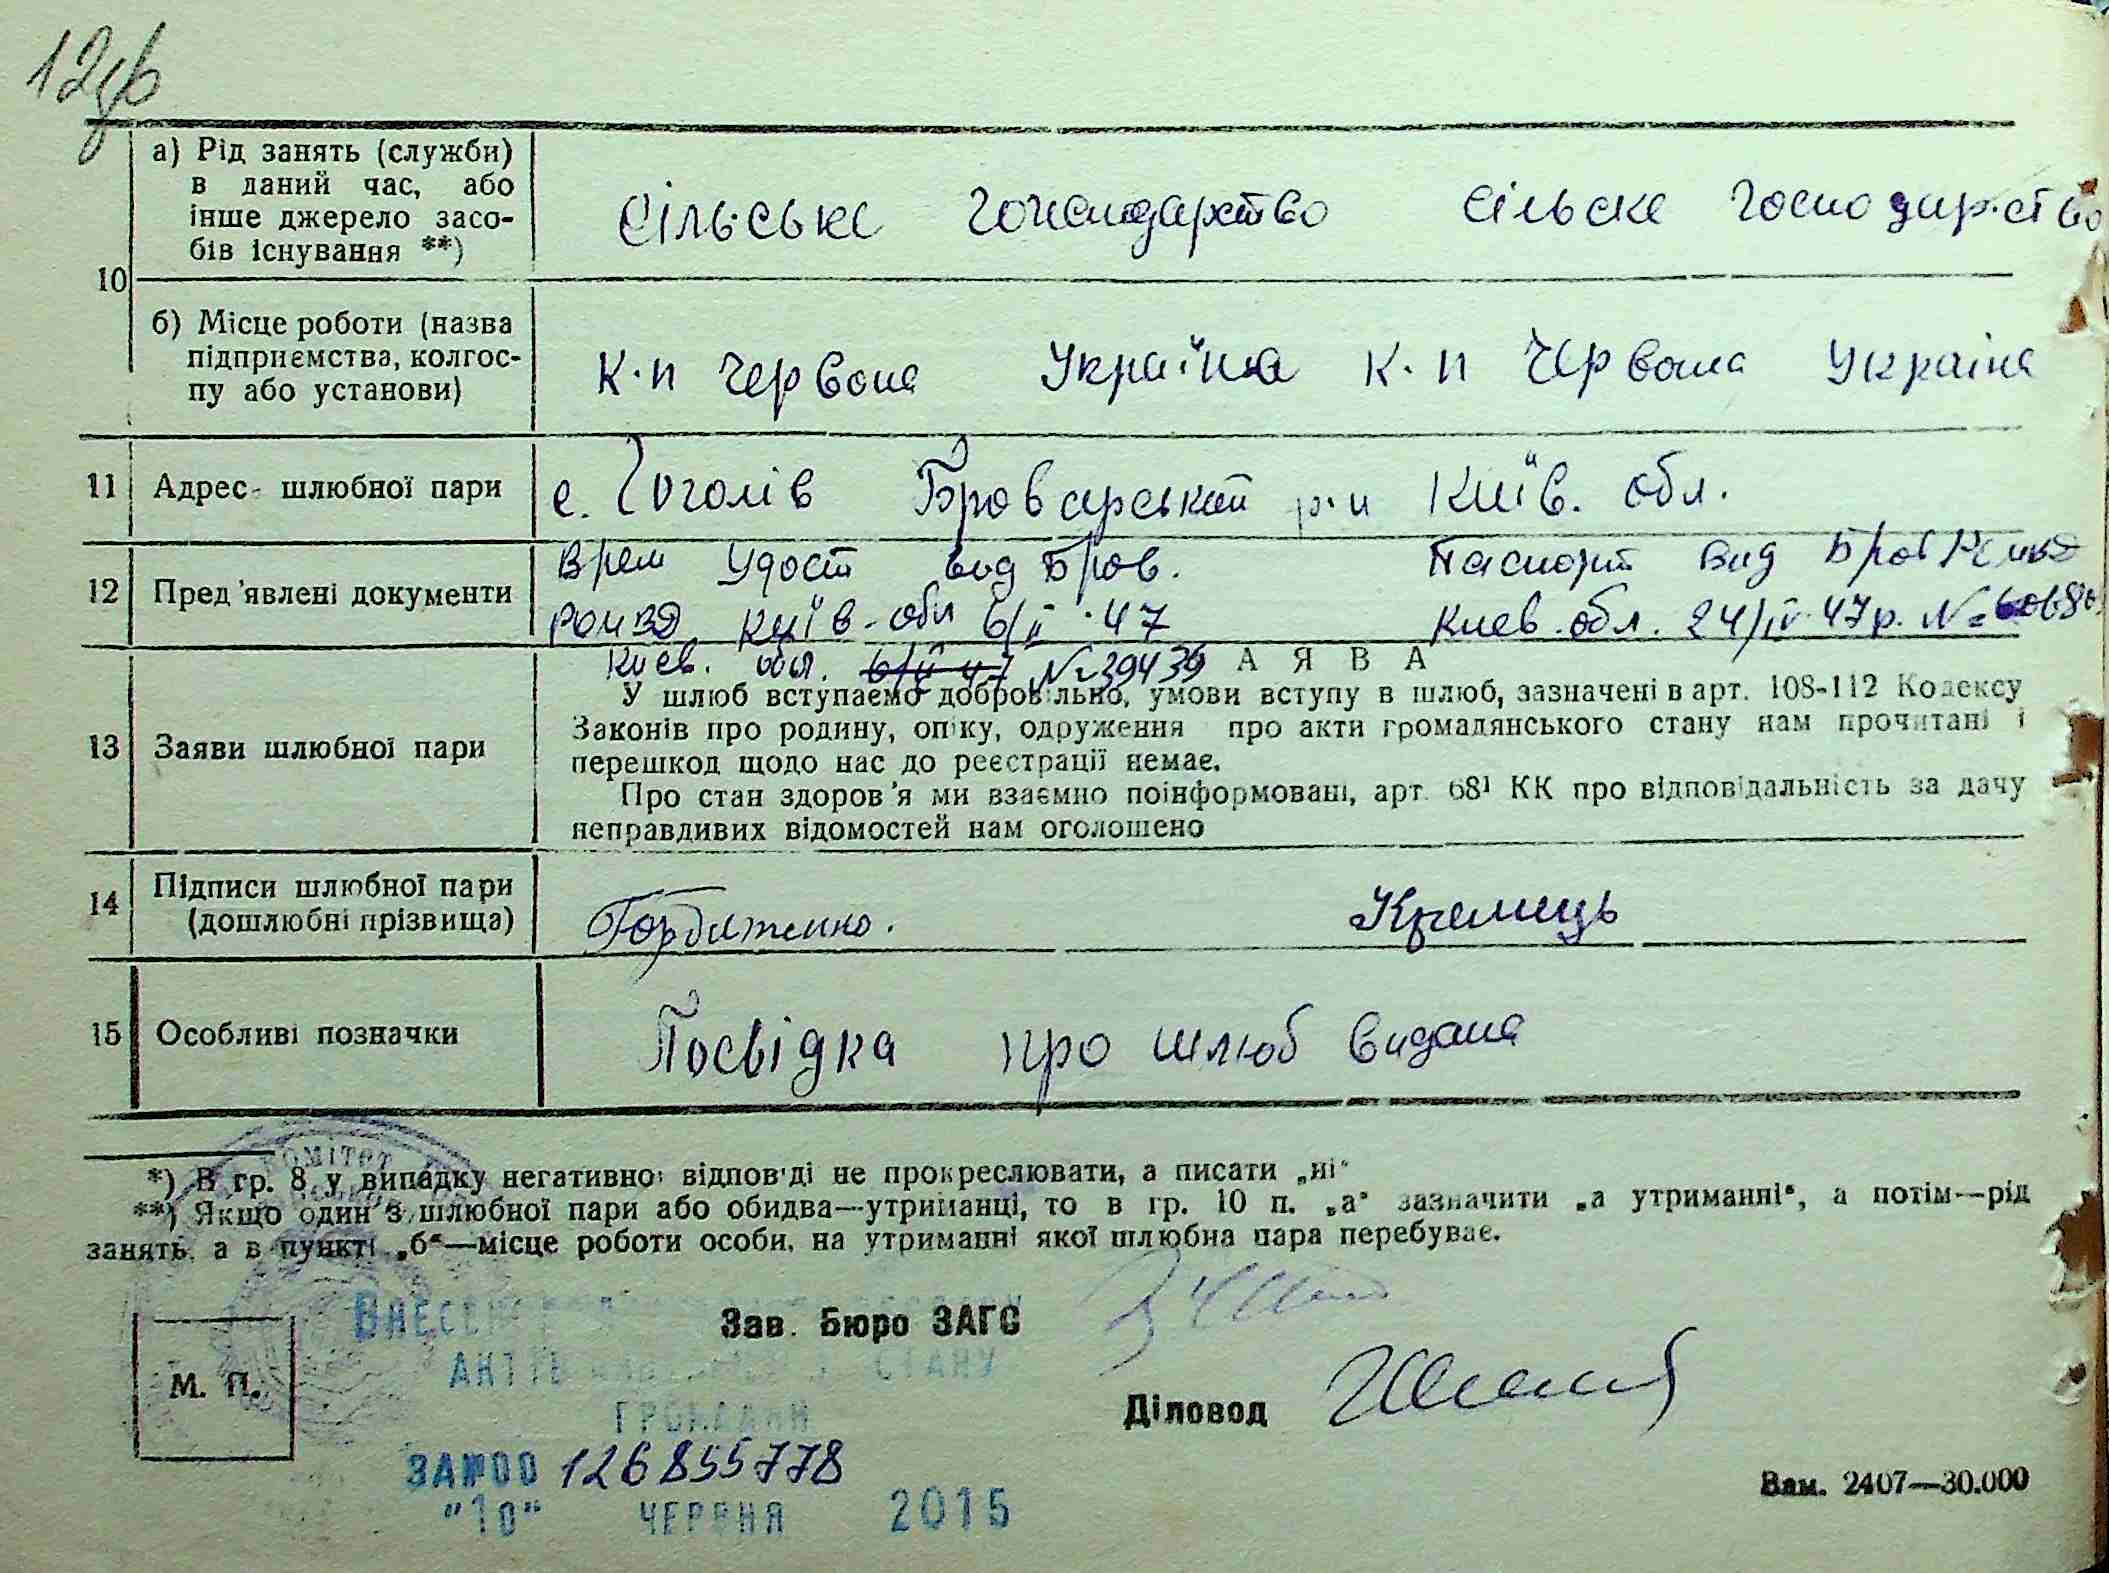 а) Рід занять (служби)
в даний час, або
інше джерело засо-
бів існування **)
Сільське господарство сільске господарство
10
б) Місце роботи (назва
підприємства, колгос-
пу або установи)
К-п Червона Україна к-п Червона Україна
11 Адрес шлюбної пари с. Гоголів Броварський р-н Київ. обл.
12 Пред'явлені документи
Врем Удост вид Бров. Паспорт вид Бров
Київ. обл 6/ІІ 47 Киев. обл. 24/IV 47р. №
Киев. обл. 6/ІІ 47 № 39439
АЯВА
13 Заяви шлюбної пари
У шлюб вступаємо добровільно, умови вступу в шлюб, зазначені в арт. 108-112 Кодексу
Законів про родину, опіку, одруження про акти громадянського стану нам прочитані і
перешкод щодо нас до реєстрації немає.
Про стан здоров'я ми взаємно поінформовані, арт. 68¹ КК про відповідальність за дачу
неправдивих відомостей нам оголошено
14 Підписи шлюбної пари
(дошлюбні прізвища)
Кремець
15 Особливі позначки Посвідка про шлюб видана
КОМІТЕТ
*) В гр. 8 у випадку негативної відповіді не прокреслювати, а писати „ні“
**) Якщо один з шлюбної пари або обидва—утриманці, то в гр. 10 п. „а“ зазначити „а утриманні“, а потім—рід
занять, а в пункті „б“—місце роботи особи, на утриманні якої шлюбна пара перебуває.
ВНЕСЕН
Зав. Бюро ЗАГС
АКТІВ СТАНУ
М. П.
ГРОМАДЯН
Діловод
ЗА №00 126855778
"10" ЧЕРВНЯ 2015
Зам. 2407—30.000